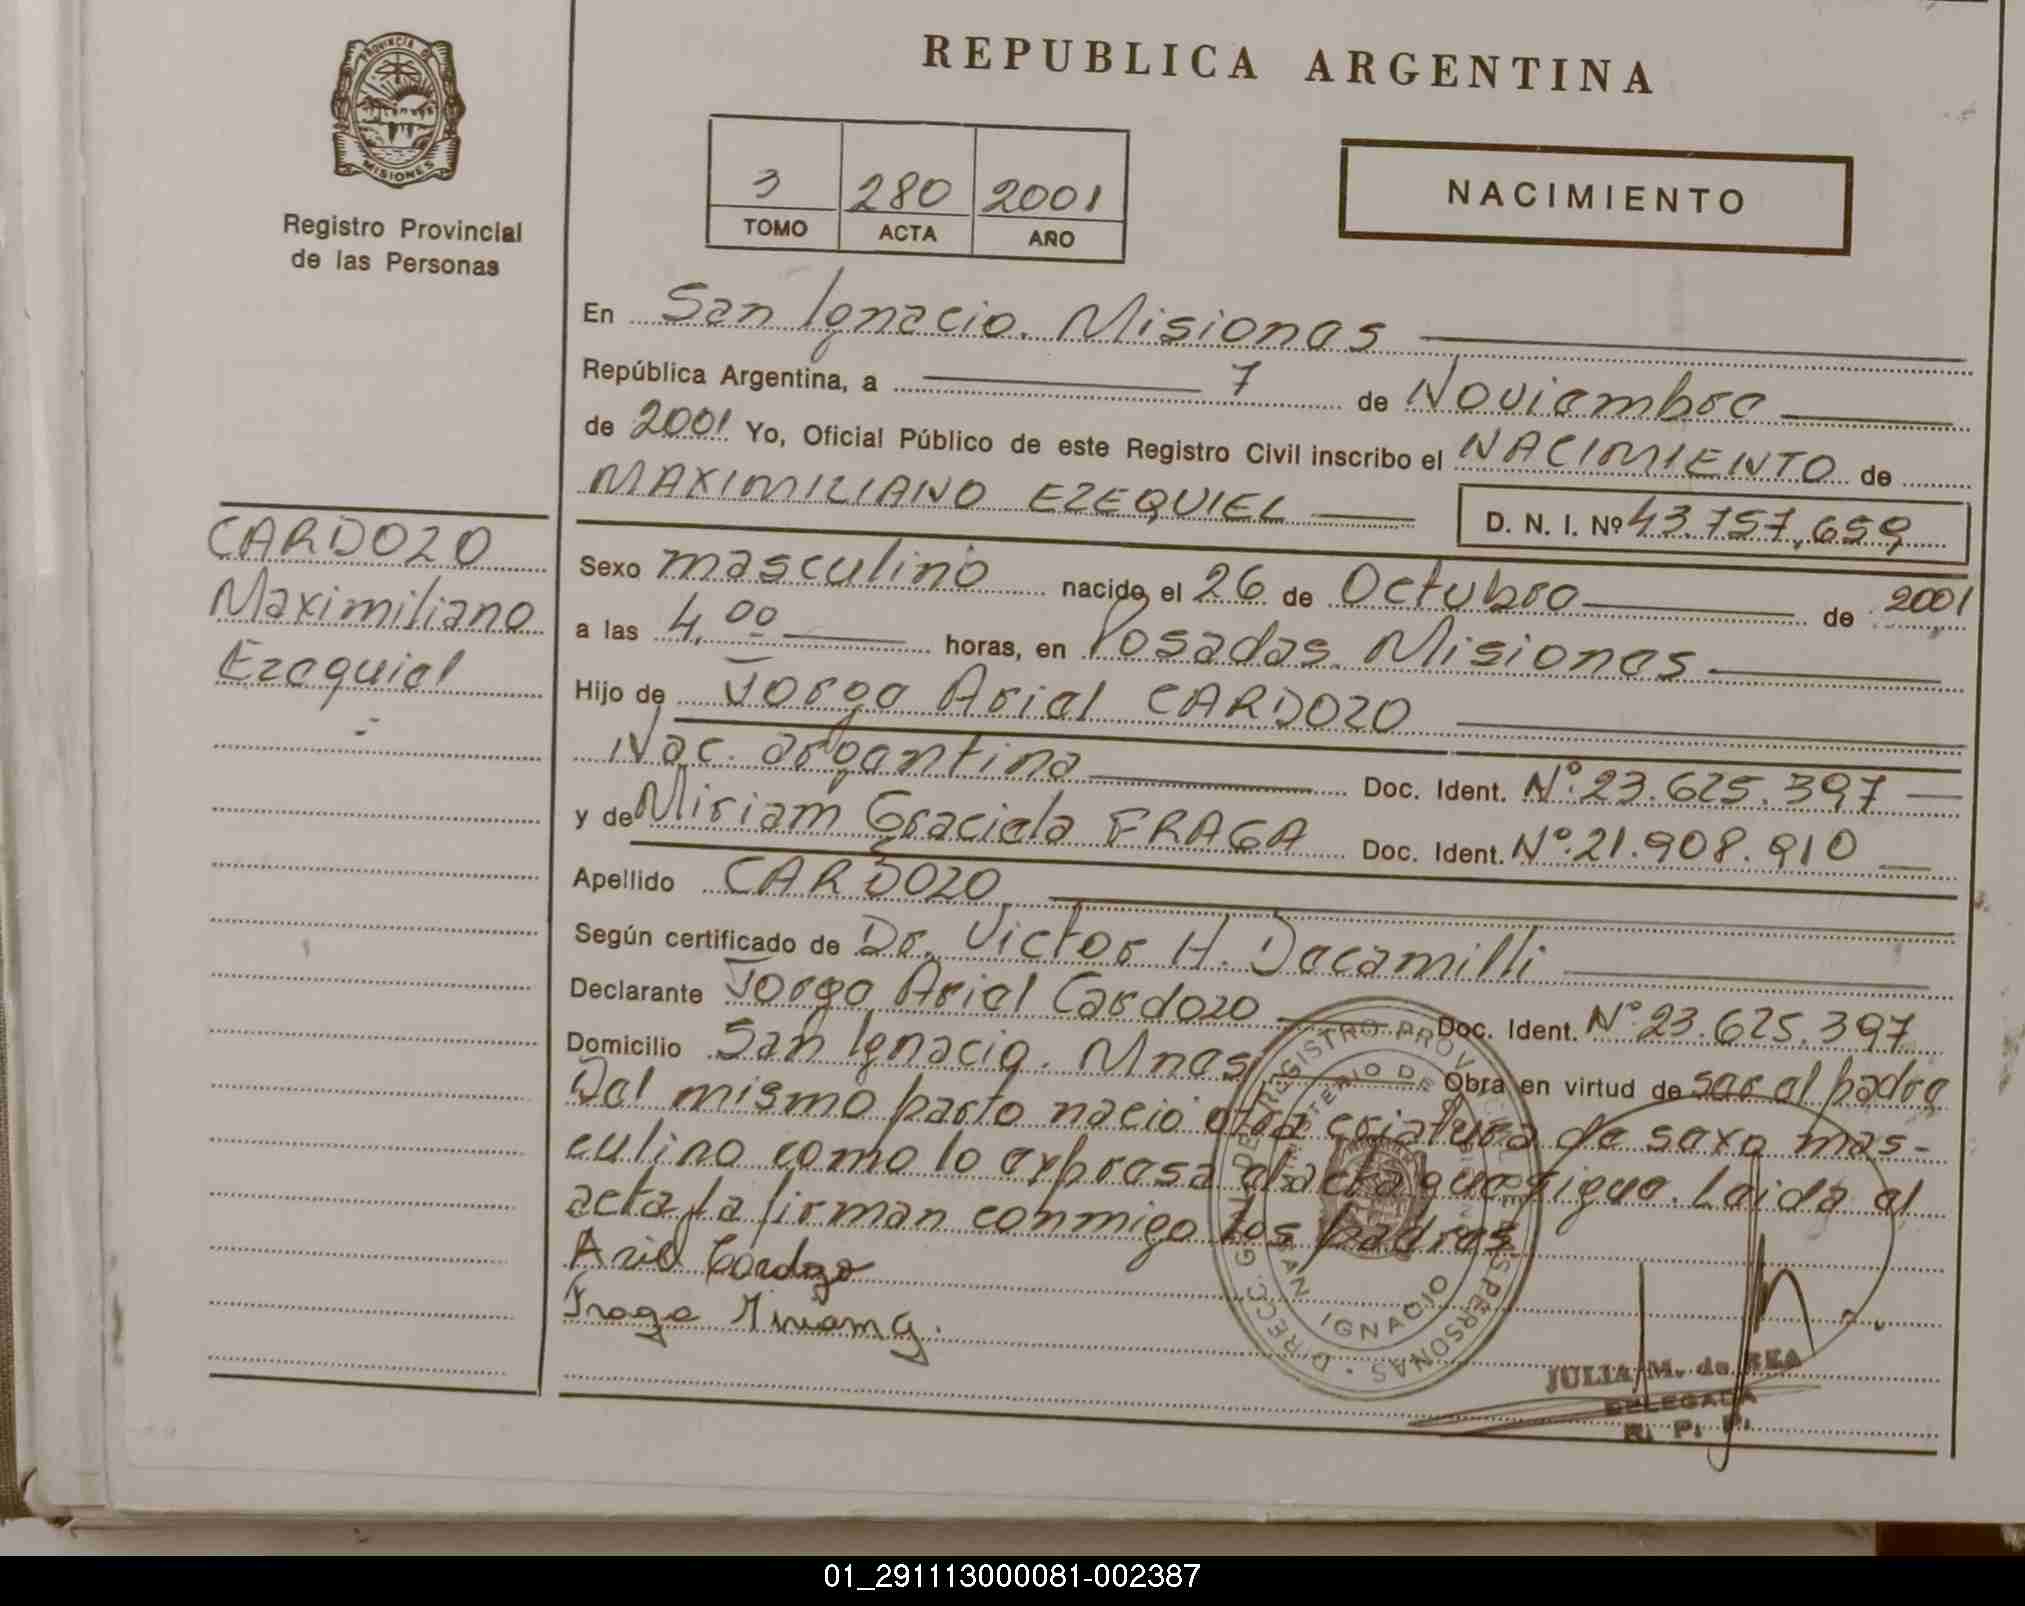 PROVINCIA DE
MISIONES
Registro Provincial
de las Personas
REPUBLICA ARGENTINA
3 280 2001
TOMO ACTA AÑO
NACIMIENTO
En San Ignacio. Misiones
República Argentina, a 7 de Noviembre
de 2001 Yo, Oficial Público de este Registro Civil inscribo el NACIMIENTO de
MAXIMILIANO EZEQUIEL D. N. I. Nº 43.757.659
CARDOZO
Maximiliano
Ezequiel
Sexo masculino nacido el 26 de Octubre de 2001
a las 4,00 horas, en Posadas. Misiones
Hijo de Jorge Ariel CARDOZO
Nac. argentina Doc. Ident. Nº 23.625.397
y de Miriam Graciela FRAGA Doc. Ident. Nº 21.908.910
Apellido CARDOZO
Según certificado de Dr. Victor H. Decamilli
Declarante Jorge Ariel Cardozo Doc. Ident. Nº 23.625.397
Domicilio San Ignacio. Mnes Obra en virtud de ser el padre
Del mismo parto nació otra criatura de sexo mas-
culino como lo expresa el acta que sigue. Leida el
acta la firman conmigo los padres.
Ariel Cardozo
Fraga Miriam G.
DIRECC. GRAL. DE REGISTRO PROVINCIAL DE LAS PERSONAS
MINISTERIO DE
SAN IGNACIO
JULIA M. de REA
DELEGADA
R. P. P.
01_291113000081-002387